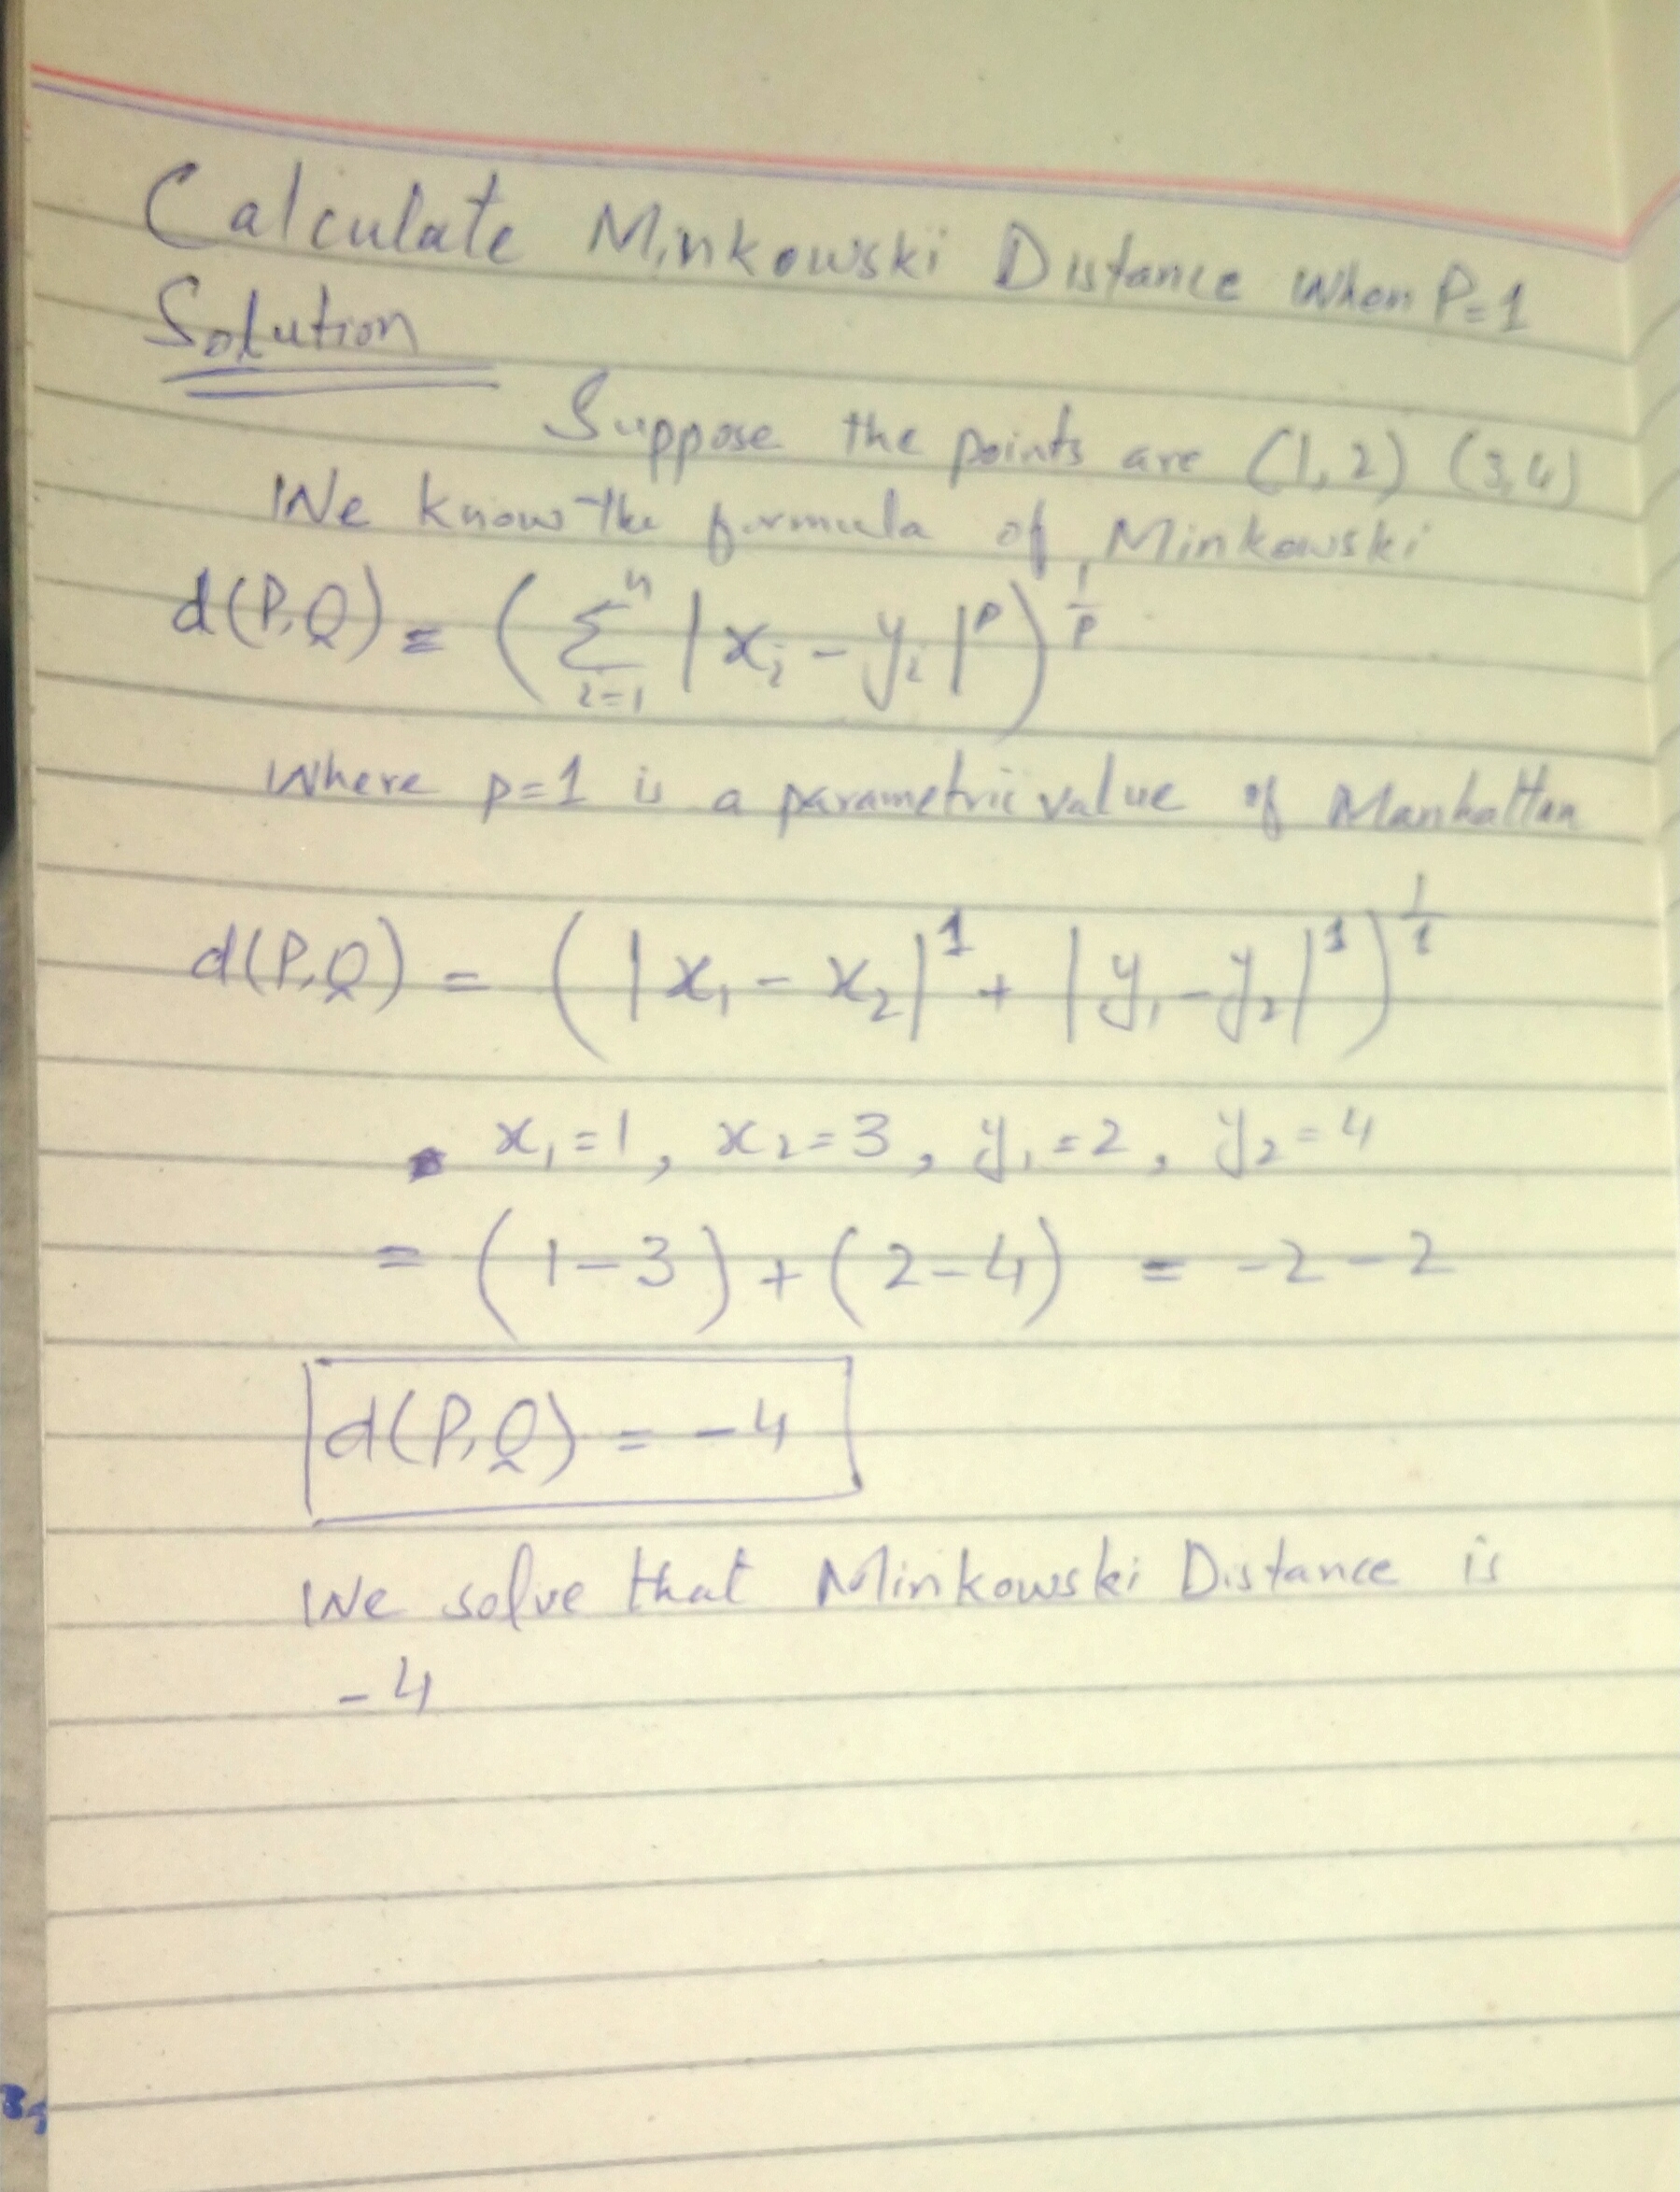 Calculate Minkowski Distance when P=1
Solution
Suppose the points are (1,2) (3,4)
We know the formula of Minkowski
d(P,Q) = (∑ⁿᵢ₌₁ |xᵢ - yᵢ|ᵖ)^(1/p)
Where p=1 is a parametric value of Manhattan
d(P,Q) = (|x₁ - x₂|¹ + |y₁ - y₂|¹)^(1/1)
x₁=1, x₂=3, y₁=2, y₂=4
= (1-3) + (2-4) = -2-2
d(P,Q) = -4
We solve that Minkowski Distance is
-4